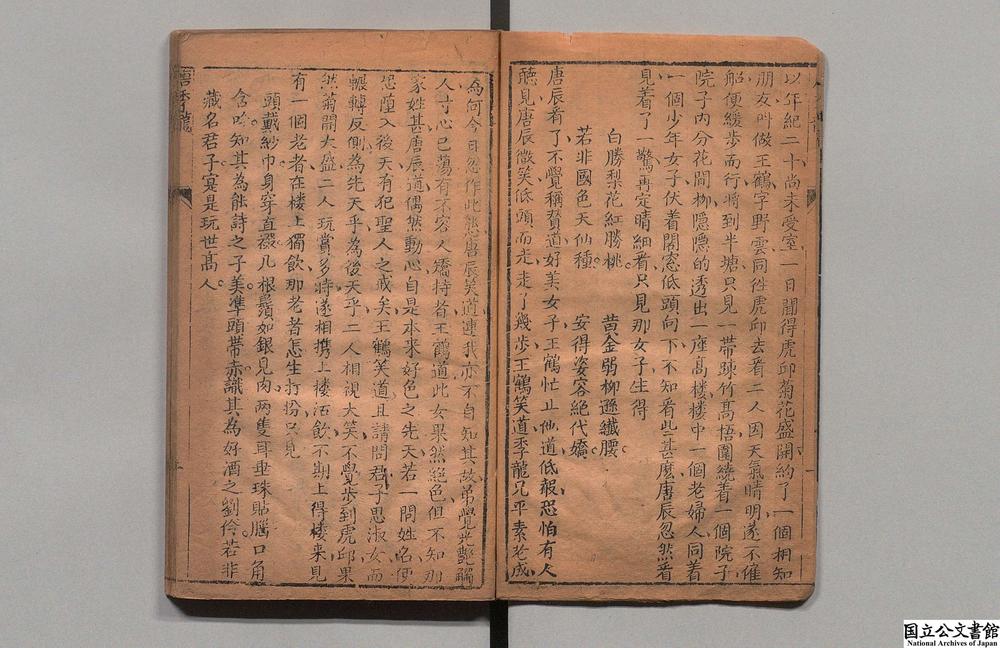 以年紀二十尚未受室一日聞得虎邱菊花盛開約了一個相知
朋友叫做王鶴字野雲同徃虎邱去看二人因天氣晴明遂不催
船便緩步而行將到半塘只見一帶疎竹髙梧圍繞着一個院子
院子内分花間栁隱隱的透出一座髙楼楼中一個老婦人同着
一個少年女子伏着閣窓低頭向下不知看些甚麽唐辰忽然看
見着了一驚再定晴細看只見那女子生得
白勝梨花紅勝桃　黄金弱柳遜纖腰
若非國色天仙種　安得姿容絶代嬌
唐辰看了不覺稱賛道好美女子王鶴忙止他道低報恐怕有人
聽見唐辰微笑低頭而走走了幾步王鶴笑道季龍兄平素老成
為何今日忽作此態唐辰笑道連我亦不自知其故弟覺光艷觸
人寸心已蕩有不容人矯持者王鶴道此女果然絶色但不知那
家姓甚唐辰道偶然動心自是本来好色之先天若一問姓名便
恐墮入後天有犯聖人之戒矣王鶴笑道且請問君子思淑女而
輾轉反側為先天乎為後天乎二人相視大笑不覺歩到虎邱果
然菊開大盛二人玩賞多時遂相携上楼沽飲不期上得楼来見
有一個老者在楼上獨飲那老者怎生打扮只見
頭戴紗巾身穿直裰几根鬚如銀見肉两隻耳垂珠貼腦口角
含吟知其為能詩之子美準頭帯赤識其為好酒之劉伶若非
藏名君子㝎是玩世髙人